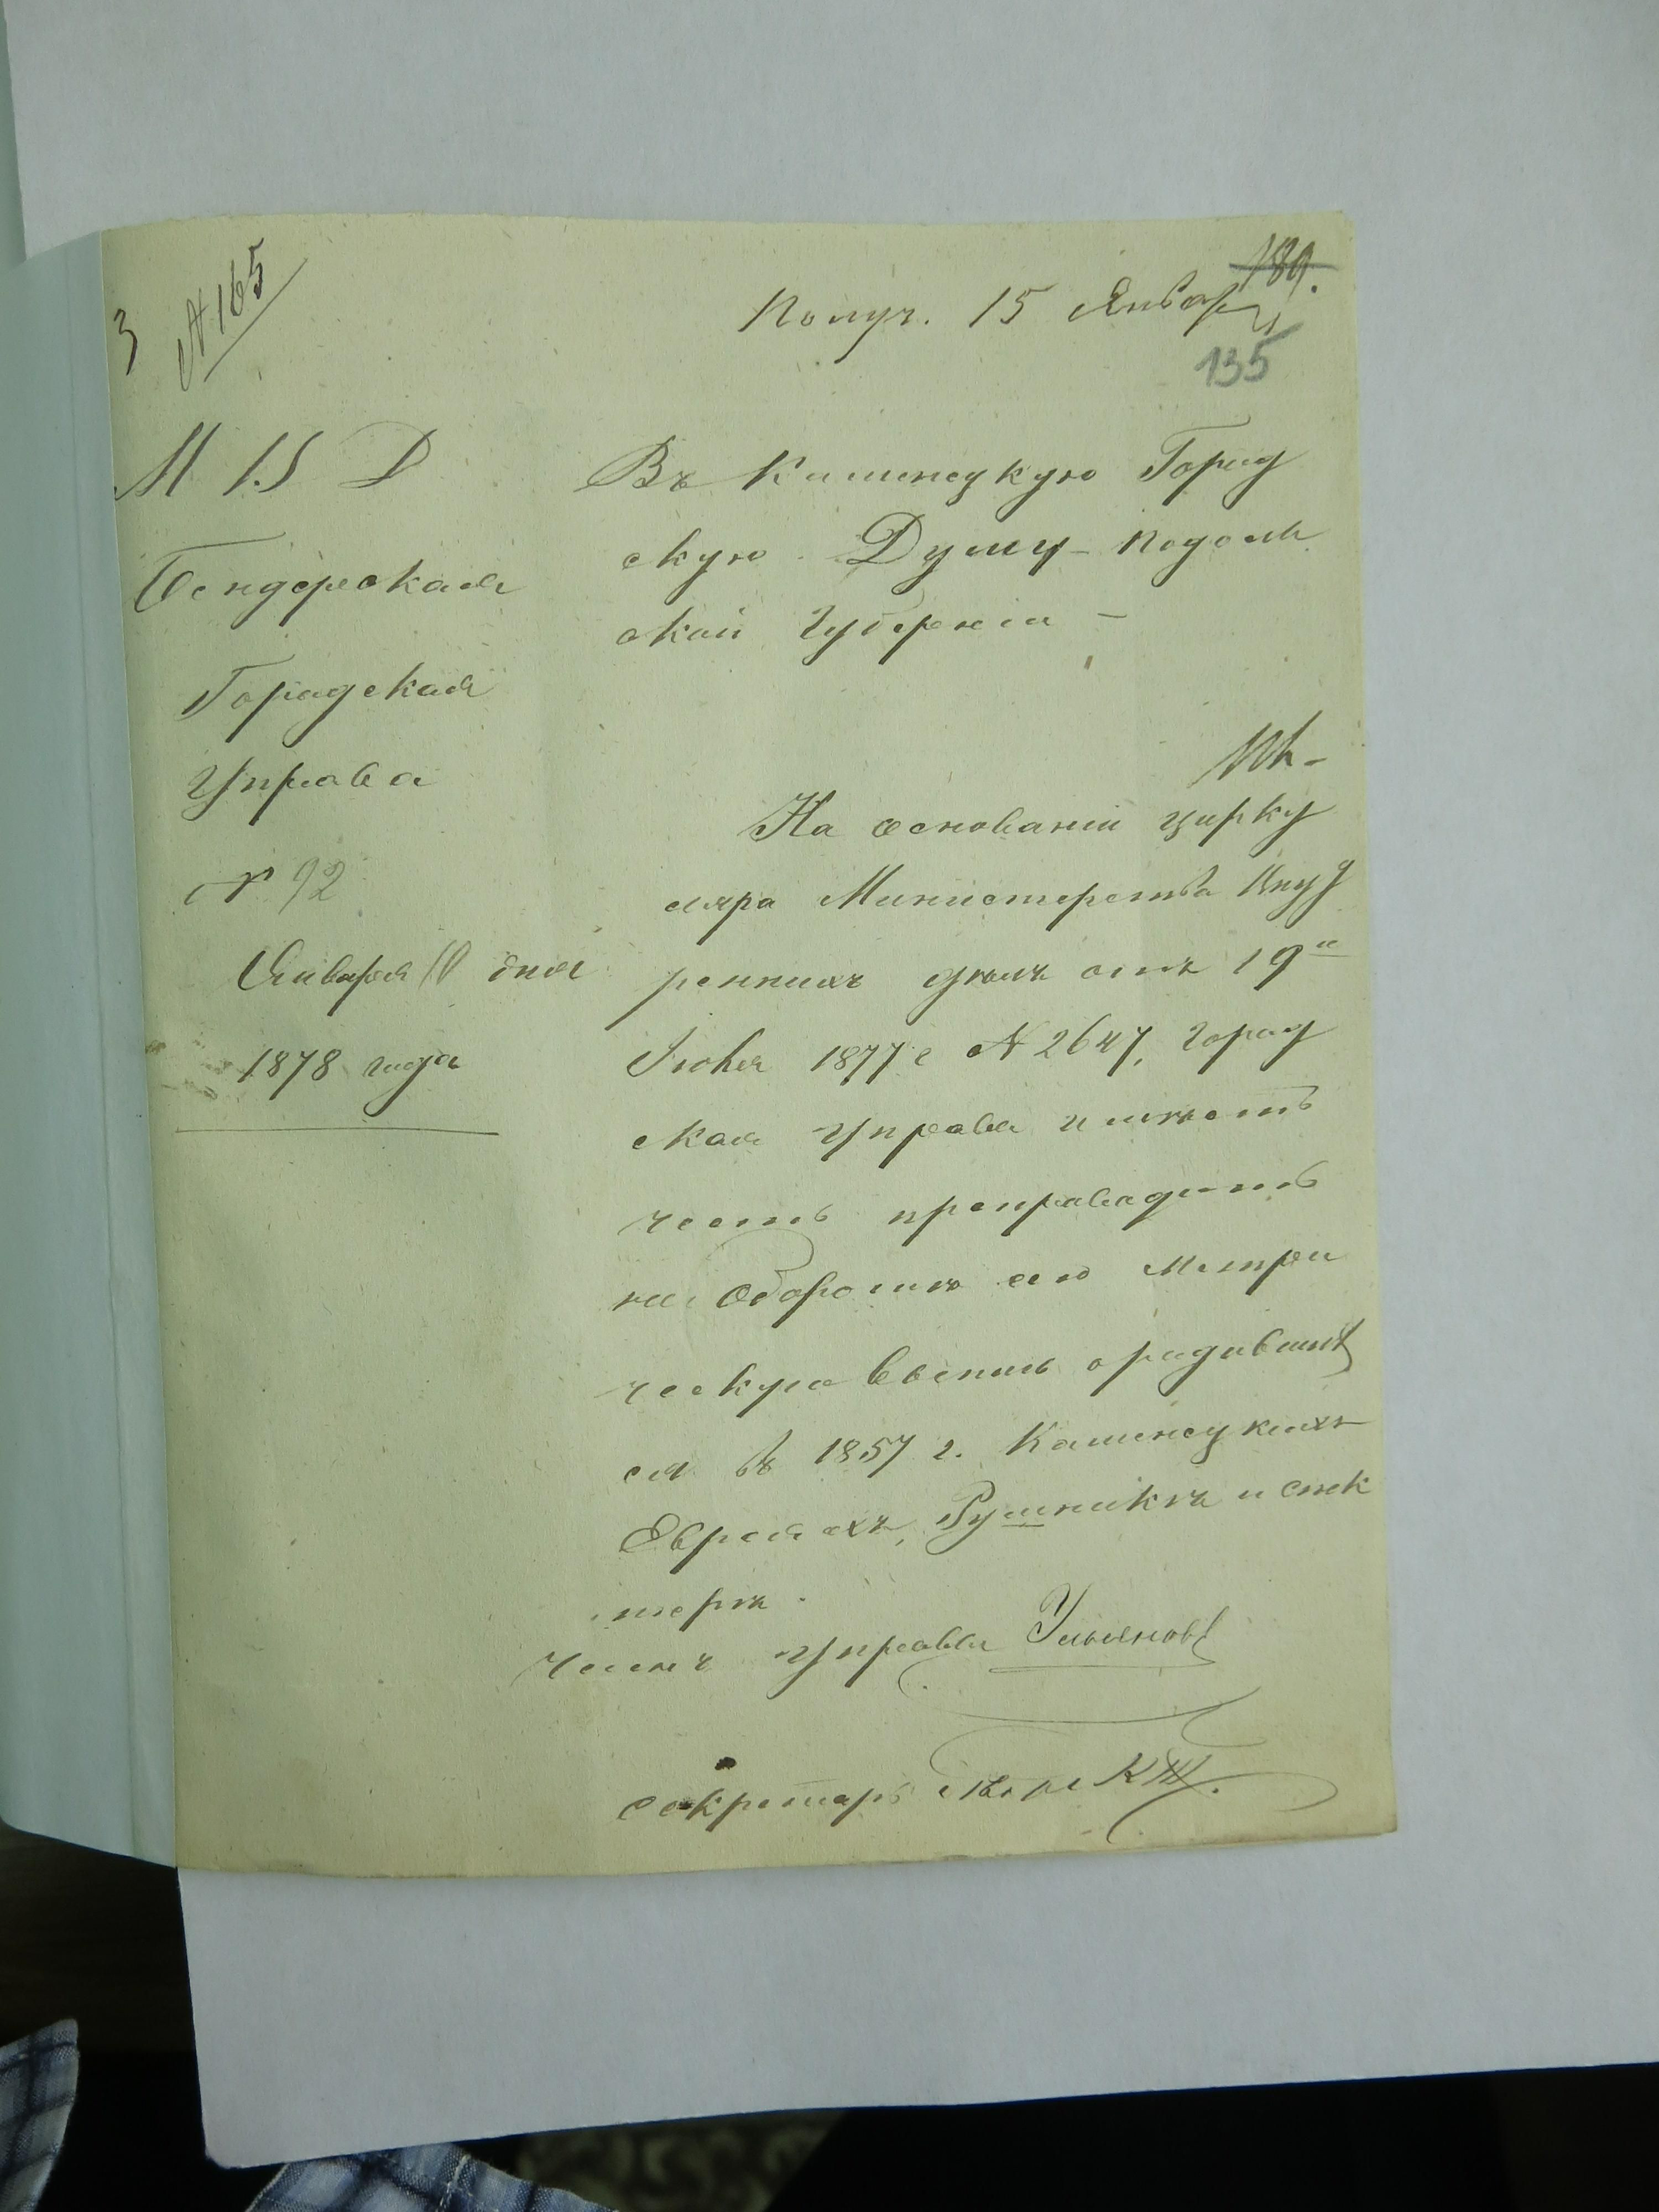 3
№ 165
Получ. 15 Января
189.
135
М В Д
Бендерская
Городская
Управа
№ 92
Января 10 дня
1878 года
Въ Каменецкую Город
скую Думу – Подоль
ской Губерніи –
На основаніи цирку
ляра Министерства Внут
реннихъ дѣлъ отъ 19го
1877 г № 2647, город
ская Управа имѣетъ
честь препроводить
на оборотѣ сего Метри
ческую выпись о родивших
ся въ 1857 г. Каменецкихъ
Евреяхъ,
Членъ Управы Ульяновъ
Секретарь